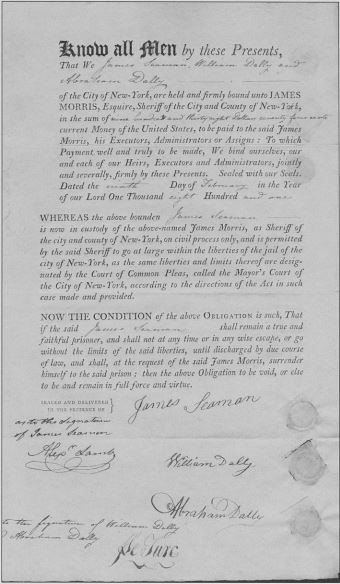 Know all Men by these Presents,
That We James Seaman, William Dally and
Abraham Dally
of the City of New-York, are held and firmly bound unto JAMES
MORRIS, Esquire, Sheriff of the City and County of New-York,
in the sum of nine hundred and thirty eight Dollars seventy four cents
current Money of the United States, to be paid to the said James
Morris, his Executors, Administrators or Assigns: To which
Payment well and truly to be made, We bind ourselves, our
and each of our Heirs, Executors and Administrators, jointly
and severally, firmly by these Presents. Sealed with our Seals.
Dated the ninth Day of February in the Year
of our Lord One Thousand eight Hundred and one
WHEREAS the above bounden James Seaman
is now in custody of the above-named James Morris, as Sheriff of
the city and county of New-York, on civil process only, and is permitted
by the said Sheriff to go at large within the liberties of the jail of the
city of New-York, as the same liberties and limits thereof are desig-
nated by the Court of Common Pleas, called the Mayor's Court of
the City of New-York, according to the directions of the Act in such
case made and provided.
NOW THE CONDITION of the above OBLIGATION is such, That
if the said James Seaman shall remain a true and
faithful prisoner, and shall not at any time or in any wise escape, or go
without the limits of the said liberties, until discharged by due course
of law, and shall, at the request of the said James Morris, surrender
himself to the said prison: then the above Obligation to be void, or else
to be and remain in full force and virtue.
SEALED AND DELIVERED
IN THE PRESENCE OF
James Seaman
as to the signature
of James Seaman
Alexr Lamb
William Dally
Abraham Dally
to the signature of William Dally
Abraham Dally